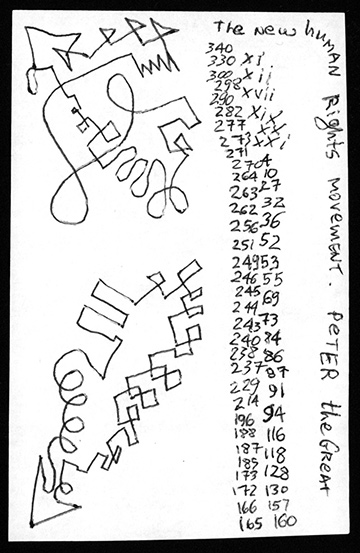 The New human Rights movement. PETER the GREAT
340
330 xi
300 xii
298 xvii
290
282 xix
277 xx
273 xxi
271
270 4
264 10
263 27
262 32
256 36
251 52
249 53
246 55
245 69
244
243 73
240 84
238 86
237 87
229 91
214 94
196
188 116
187 118
185
173 128
172 130
166 157
165 160